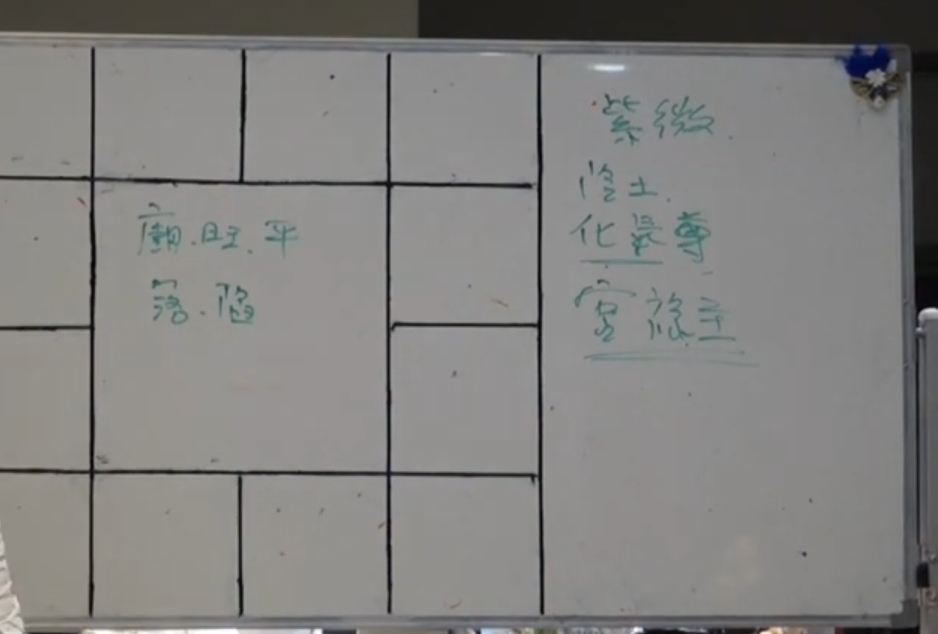 廟.旺.平
落.陷
紫微.
陰土.
化氣尊
官祿主